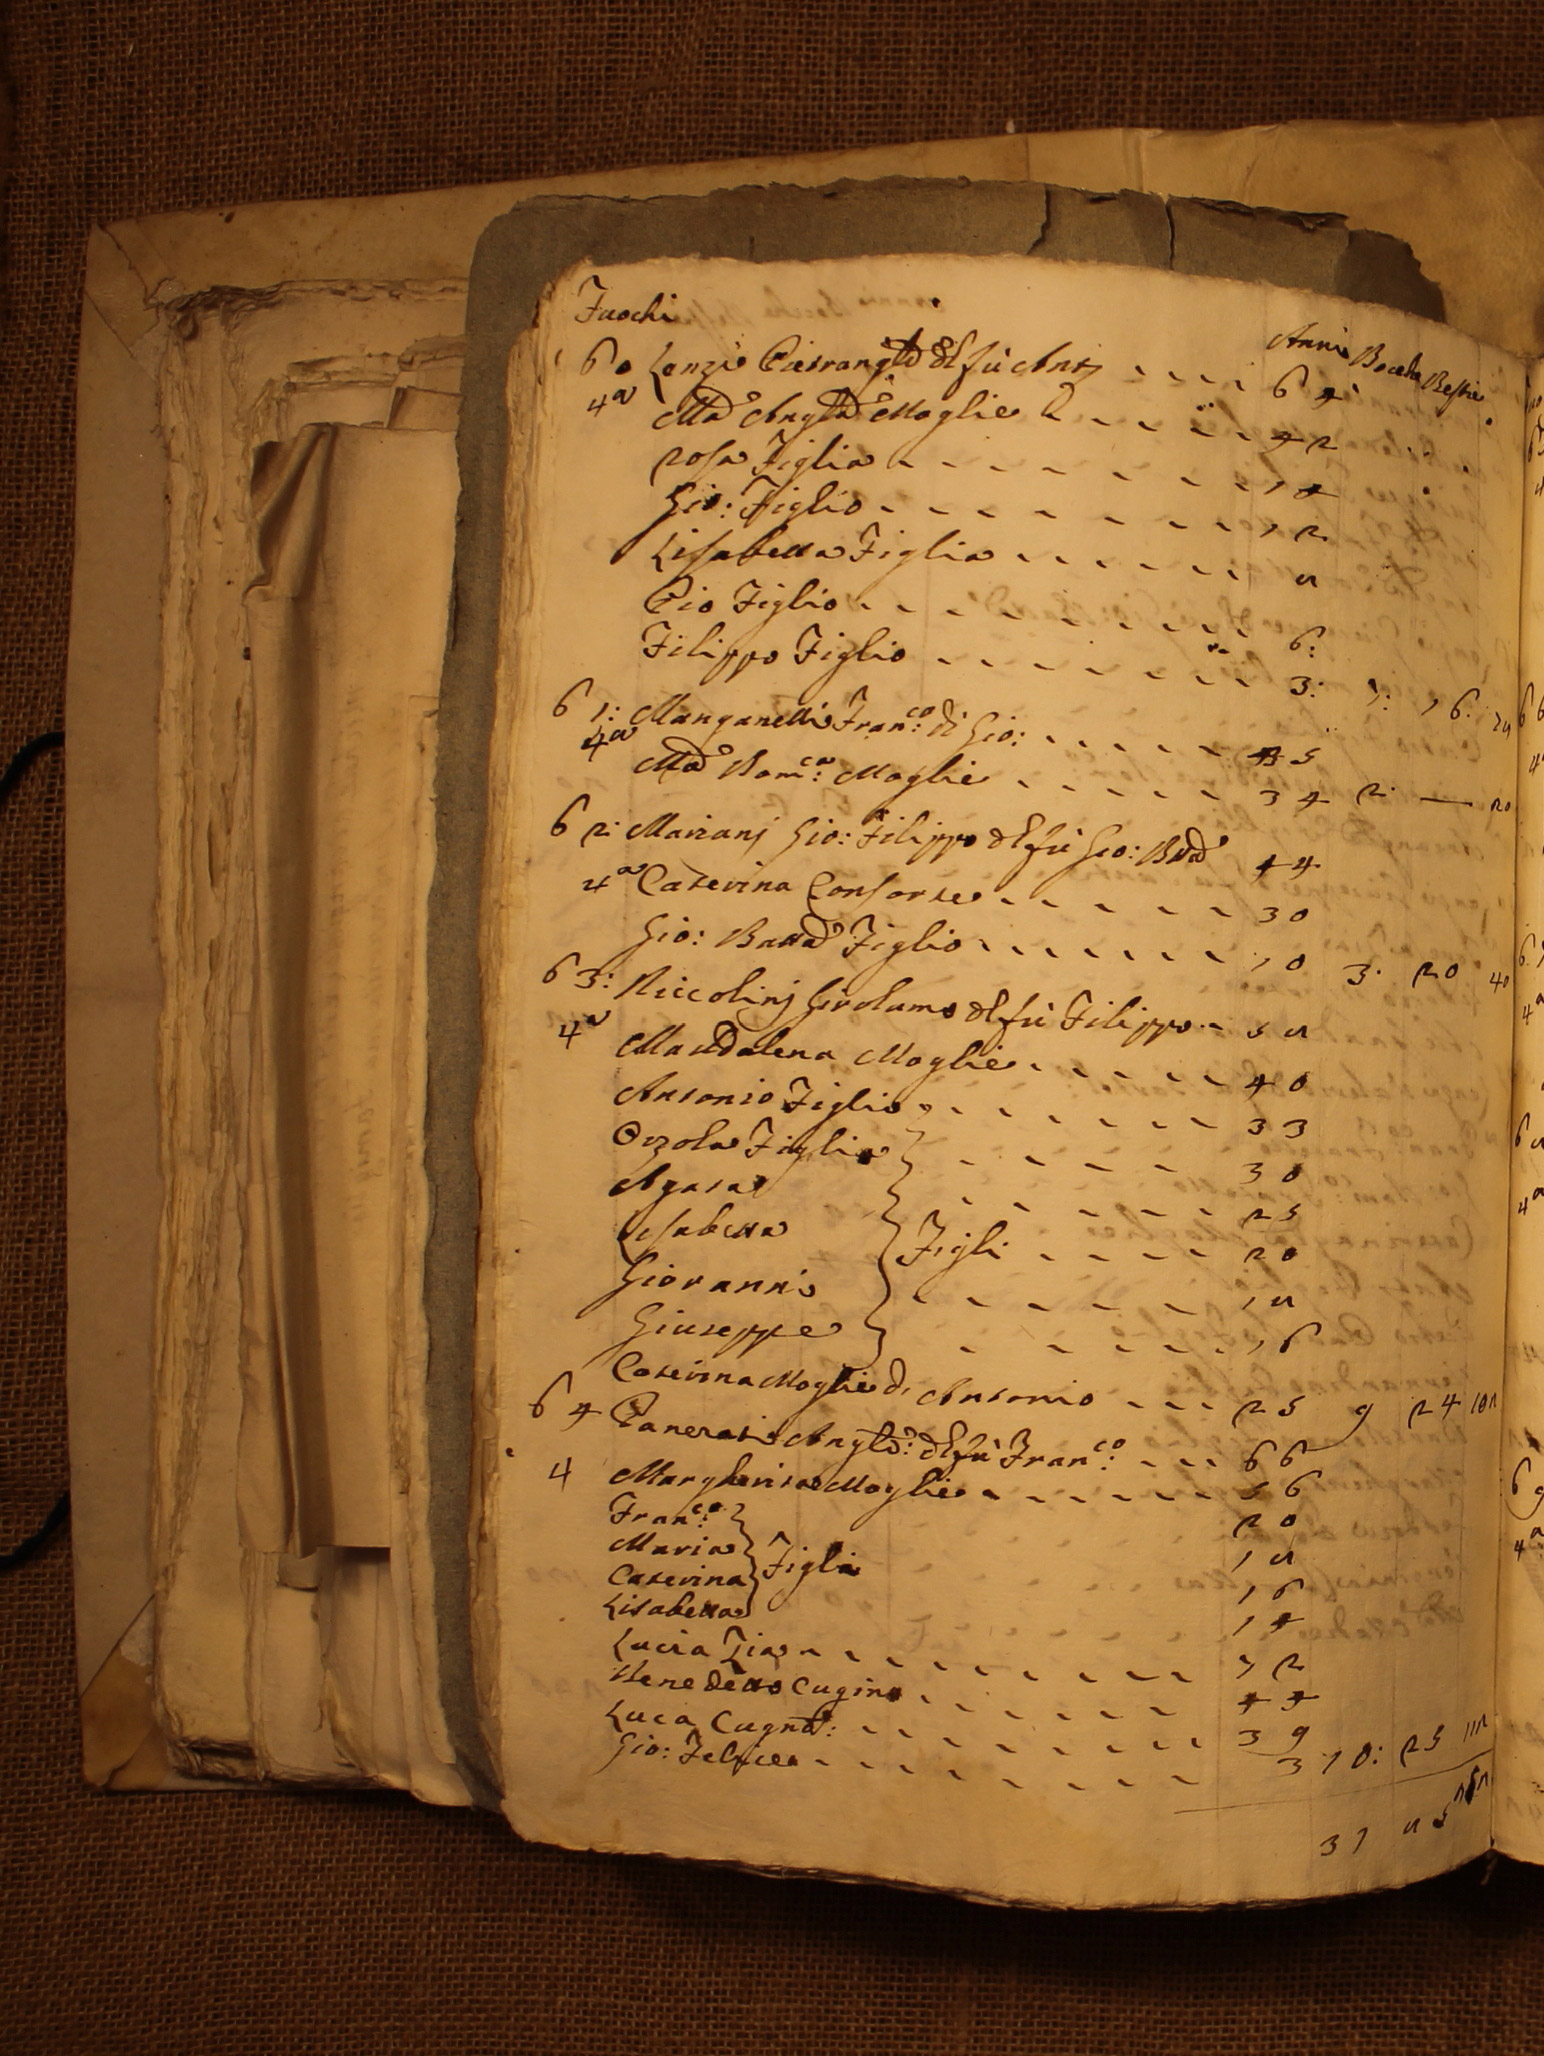 Fuochi
Anni Bocche Bestie
60 Lenzi Pietrang.lo del fù Ant.o 64
4a M.a Ang.la Moglie 42
rosa Figlia 14
Gio: Figlio 12
Lisabetta Figlia
Pio Figlio 6:
Filippo Figlio 3: 7: 16.
61: Manganelli Fran.co di Gio:
4a M.a Dom.ca Moglie 34 2. — 20
62: Mariani Gio: Filippo del fù Gio: Batta 44
4a Caterina Consorte 30
Gio: Batta Figlio 10 3. 20 40
63: Niccolinj Girolamo del fù Filippo
4a Maddalena Moglie 40
Antonio Figlio 33
Orzola Figlia 30
Agata 25
Isabetta Figli 20
Giovanni
Giuseppe 16
Caterina Moglie d'Antonio 25 9 24
64 Ang.lo: del fù Fran.co 66
4 Margherita Moglie 56
Fran.co 20
Maria Figli
Caterina 16
Lisabetta 14
Lucia Zia 72
Benedetto Cugino 44
Luca Cugno: 39
Gio: Felice 3 10: 25
37